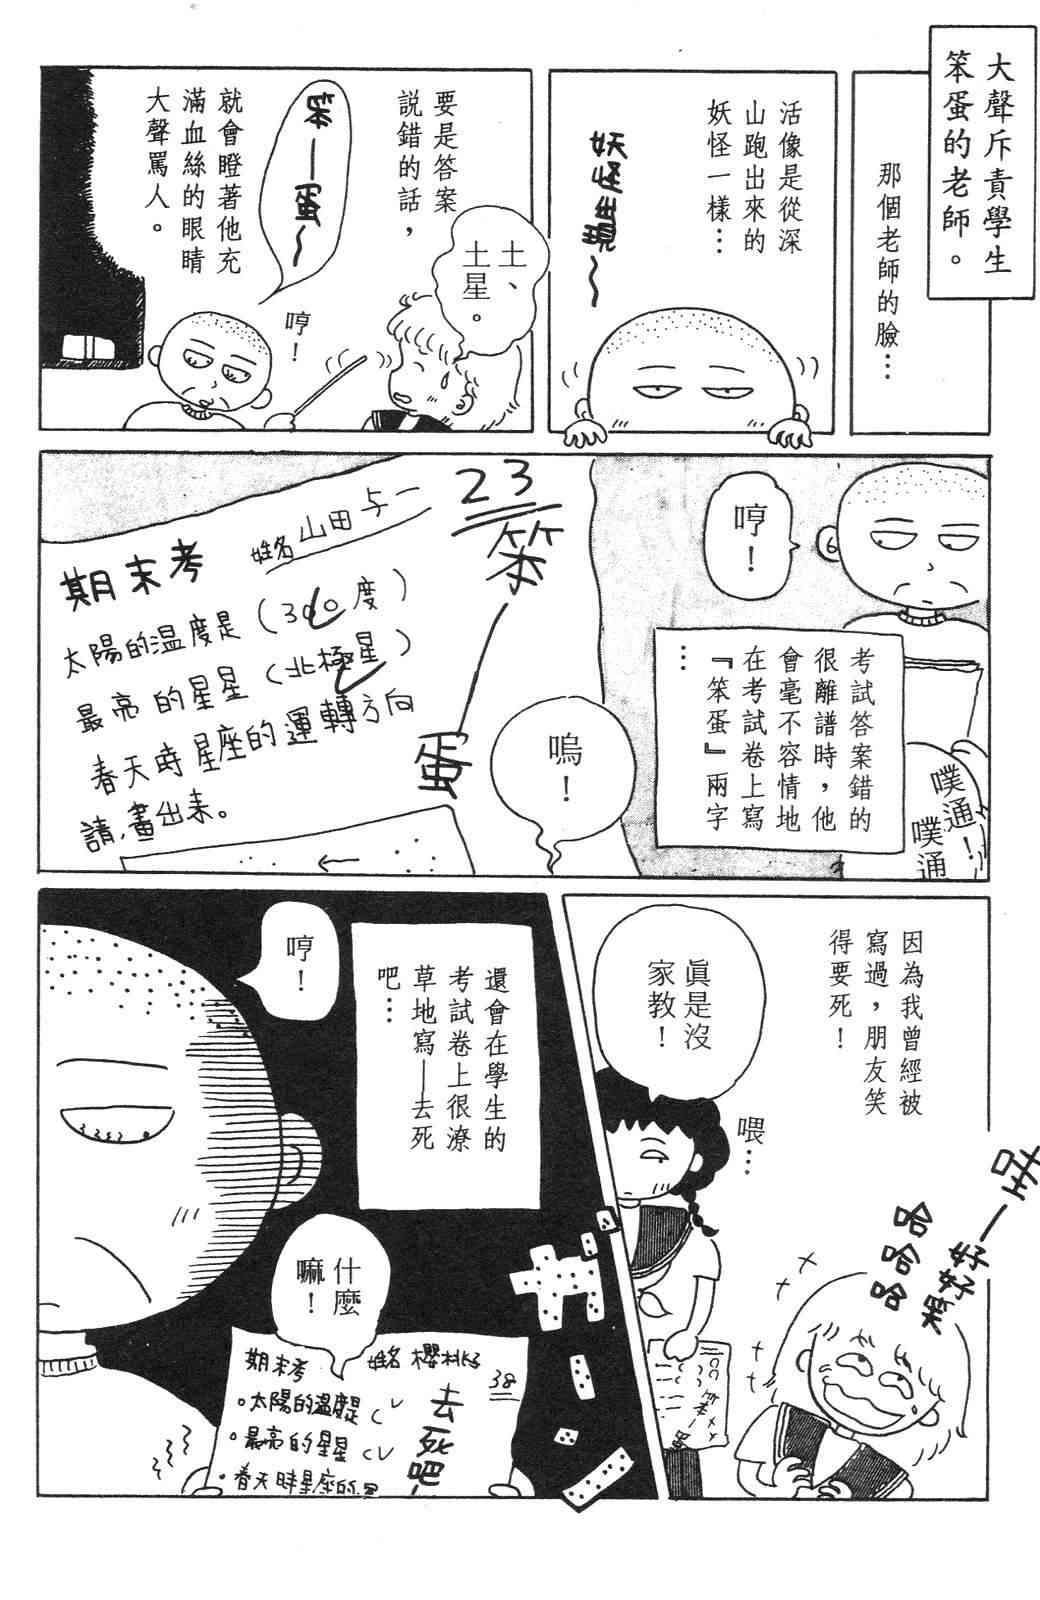 大聲斥責學生
笨蛋的老師。
那個老師的臉…
活像是從深
山跑出來的
妖怪一樣…
妖怪出現～
要是答案
説錯的話，
土、
土星。
笨—蛋～
就會瞪著他充
滿血絲的眼睛
大聲罵人。
哼！
哼！
考試答案錯的
很離譜時，他
會毫不容情地
在考試卷上寫
『笨蛋』兩字
…
噗通！
噗通
23
笨—蛋
姓名 山田与一
期末考
太陽的溫度是（300度）
最亮的星星（北極星）
春天時星座的運轉方向
請畫出來。
嗚！
因為我曾經被
寫過，朋友笑
得要死！
哇—好好笑
哈哈哈
喂…
眞是沒
家教！
還會在學生的
考試卷上很潦
草地寫—去死
吧…
哼！
什麼
嘛！
期末考
姓名 櫻桃子
38
。太陽的溫度是（
。最亮的星星（
。春天時星座的
去死吧